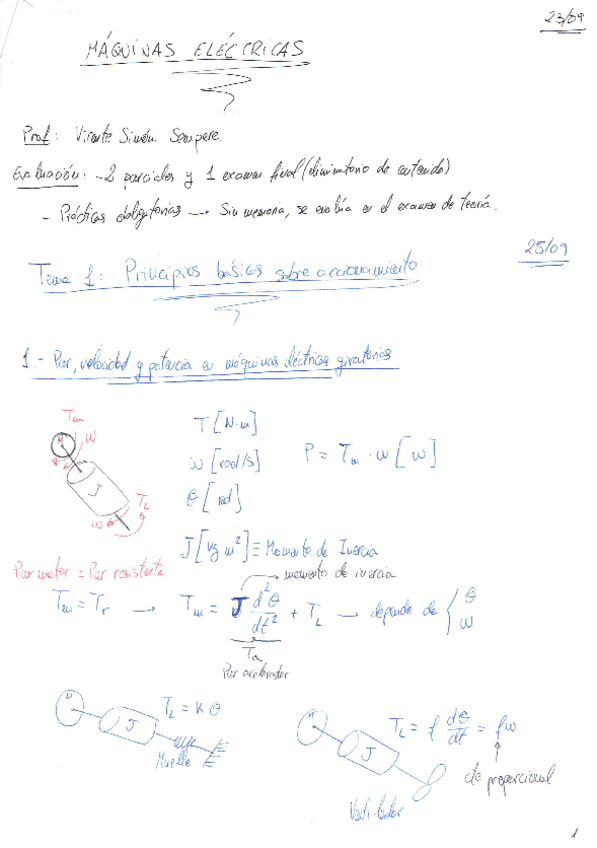 23/09
MÁQUINAS ELÉCTRICAS
Prof: Vicente Simón Sempere.
Evaluación: - 2 parciales y 1 examen final (eliminatorio de contenido)
- Prácticas obligatorias → Sin memoria, se evalúa en el examen de teoría.
25/09
Tema 1: Principios básicos sobre accionamiento
1.- Par, velocidad y potencia en máquinas eléctricas giratorias
Tm
M
ω
J
TL
ω
T [N·m]
ω [rad/s]
P = Tm · ω [W]
θ [rad]
J [kg m²] ≡ Momento de Inercia
Par motor = Par resistente
momento de inercia
Tm = Tr → Tm = J d²θ/dt² + TL → depende de { θ ω
Ta
Par acelerador
M
J
TL = K θ
Muelle
M
J
TL = f dθ/dt = fω
cte proporcional
Ventilador
1